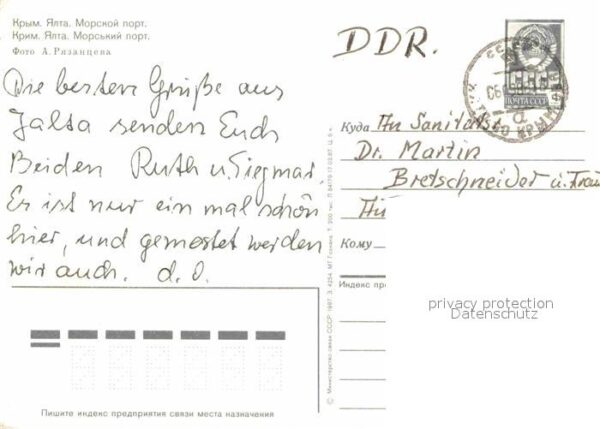 Крым. Ялта. Морской порт.
Крим. Ялта. Морський порт.
Фото А. Рязанцева
Die besten Grüße aus
Jalta senden Euch
Beiden Ruth u. Siegmar.
Es ist nur ein mal schön
hier, und gemestet werden
wir auch. d. O.
DDR.
ПОЧТА СССР
Куда An Sanitätsr.
Dr. Martin
Bretschneider u. Frau
Кому
Индекс пр
privacy protection
Datenschutz
© Министерство связи СССР, 1987. З. 4254. МТ Гознака. Т. 200 тыс.
Пишите индекс предприятия связи места назначения